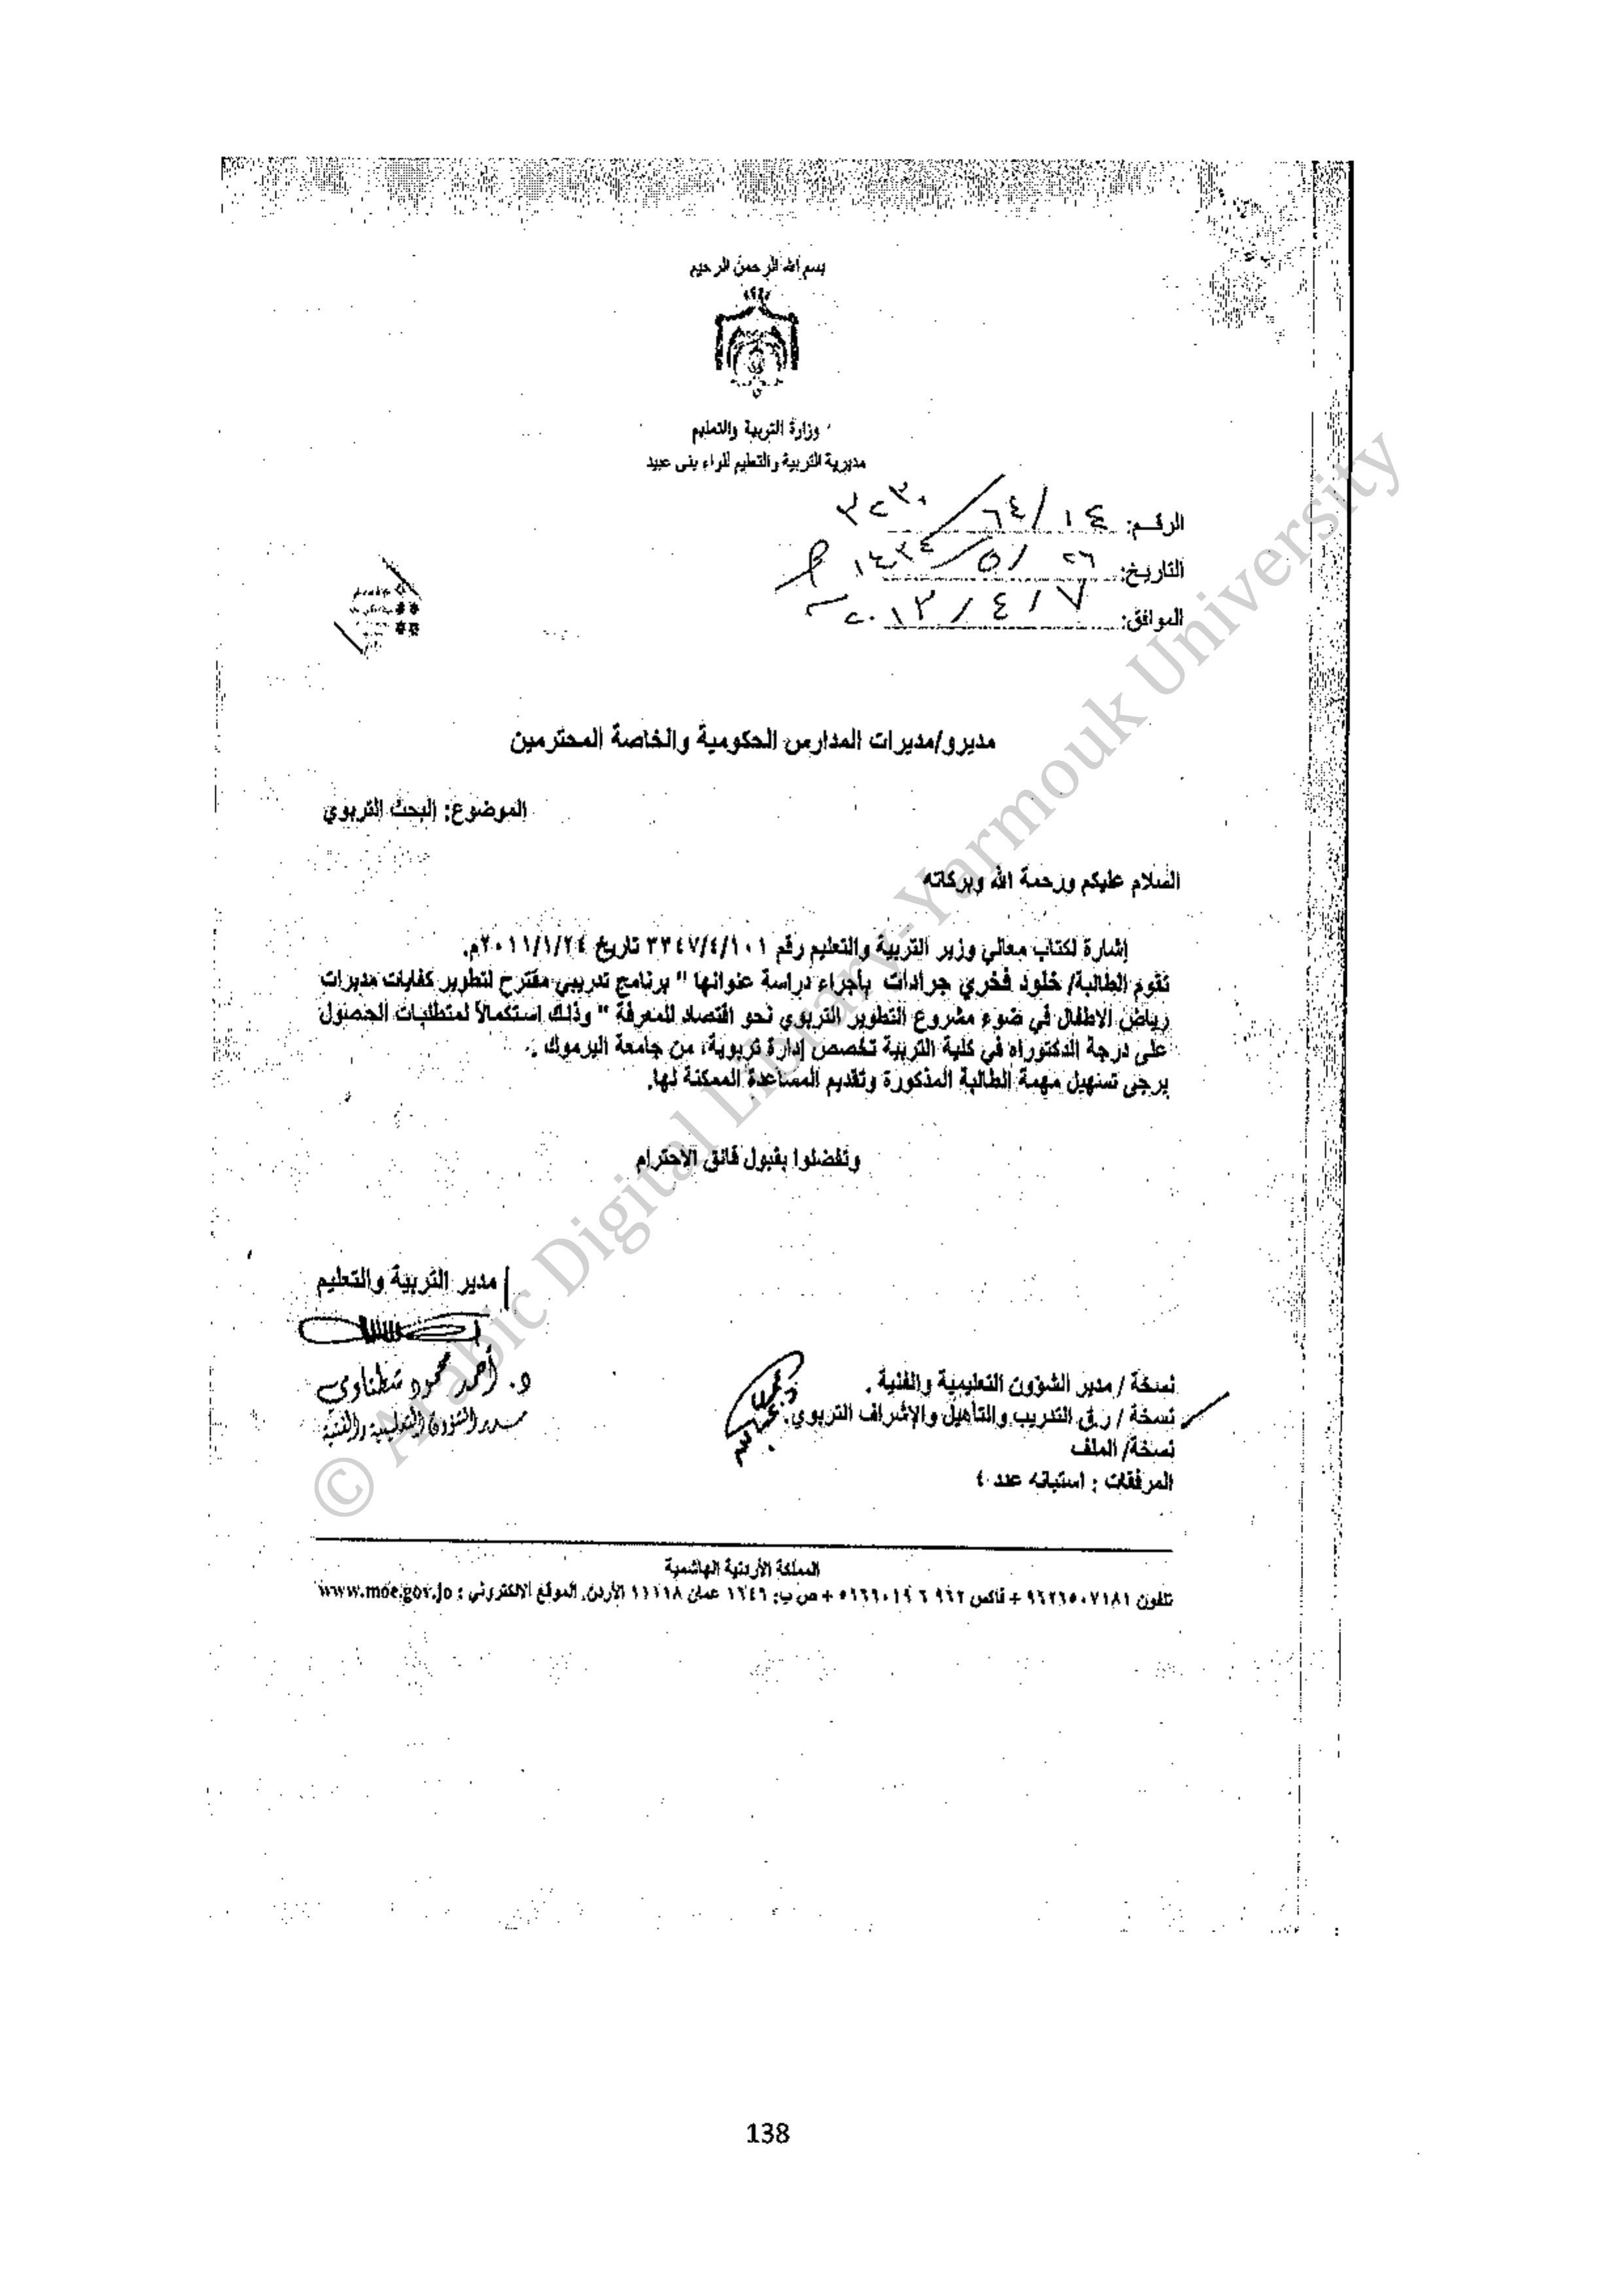 بسم الله الرحمن الرحيم
وزارة التربية والتعليم
مديرية التربية والتعليم للواء بني عبيد
الرقم: ١٤/٦٤/٣٢٣٠
التاريخ: ٢٦/٥/١٤٣٤
الموافق: ٧/٤/٢٠١٣
مديرو/مديرات المدارس الحكومية والخاصة المحترمين
الموضوع: البحث التربوي
السلام عليكم ورحمة الله وبركاته
إشارة لكتاب معالي وزير التربية والتعليم رقم ٣٣٤٧/٤/١٠١ تاريخ ٢٠١١/١/٢٤م.
تقوم الطالبة/ خلود فخري جرادات بأجراء دراسة عنوانها " برنامج تدريبي مقترح لتطوير كفايات مديرات
رياض الاطفال في ضوء مشروع التطوير التربوي نحو اقتصاد المعرفة " وذلك استكمالاً لمتطلبات الحصول
على درجة الدكتوراه في كلية التربية تخصص إدارة تربوية، من جامعة اليرموك .
يرجى تسهيل مهمة الطالبة المذكورة وتقديم المساعدة الممكنة لها.
وتفضلوا بقبول فائق الاحترام
مدير التربية والتعليم
د. أحمد محمود شطناوي
مدير الشؤون التعليمية والفنية
نسخة / مدير الشؤون التعليمية والفنية .
نسخة / ر.ق التدريب والتأهيل والإشراف التربوي.
نسخة/ الملف
المرفقات : استبانه عدد ٤
المملكة الأردنية الهاشمية
تلفون ٩٦٢٦٥٠٧١٨١ + فاكس ٩٦٢ ٦ ٥٦٦٦٠١٩ + ص ب: ١٦٤٦ عمان ١١١١٨ الأردن. الموقع الالكتروني : www.moe.gov.jo
© Arabic Digital Library-Yarmouk University
138